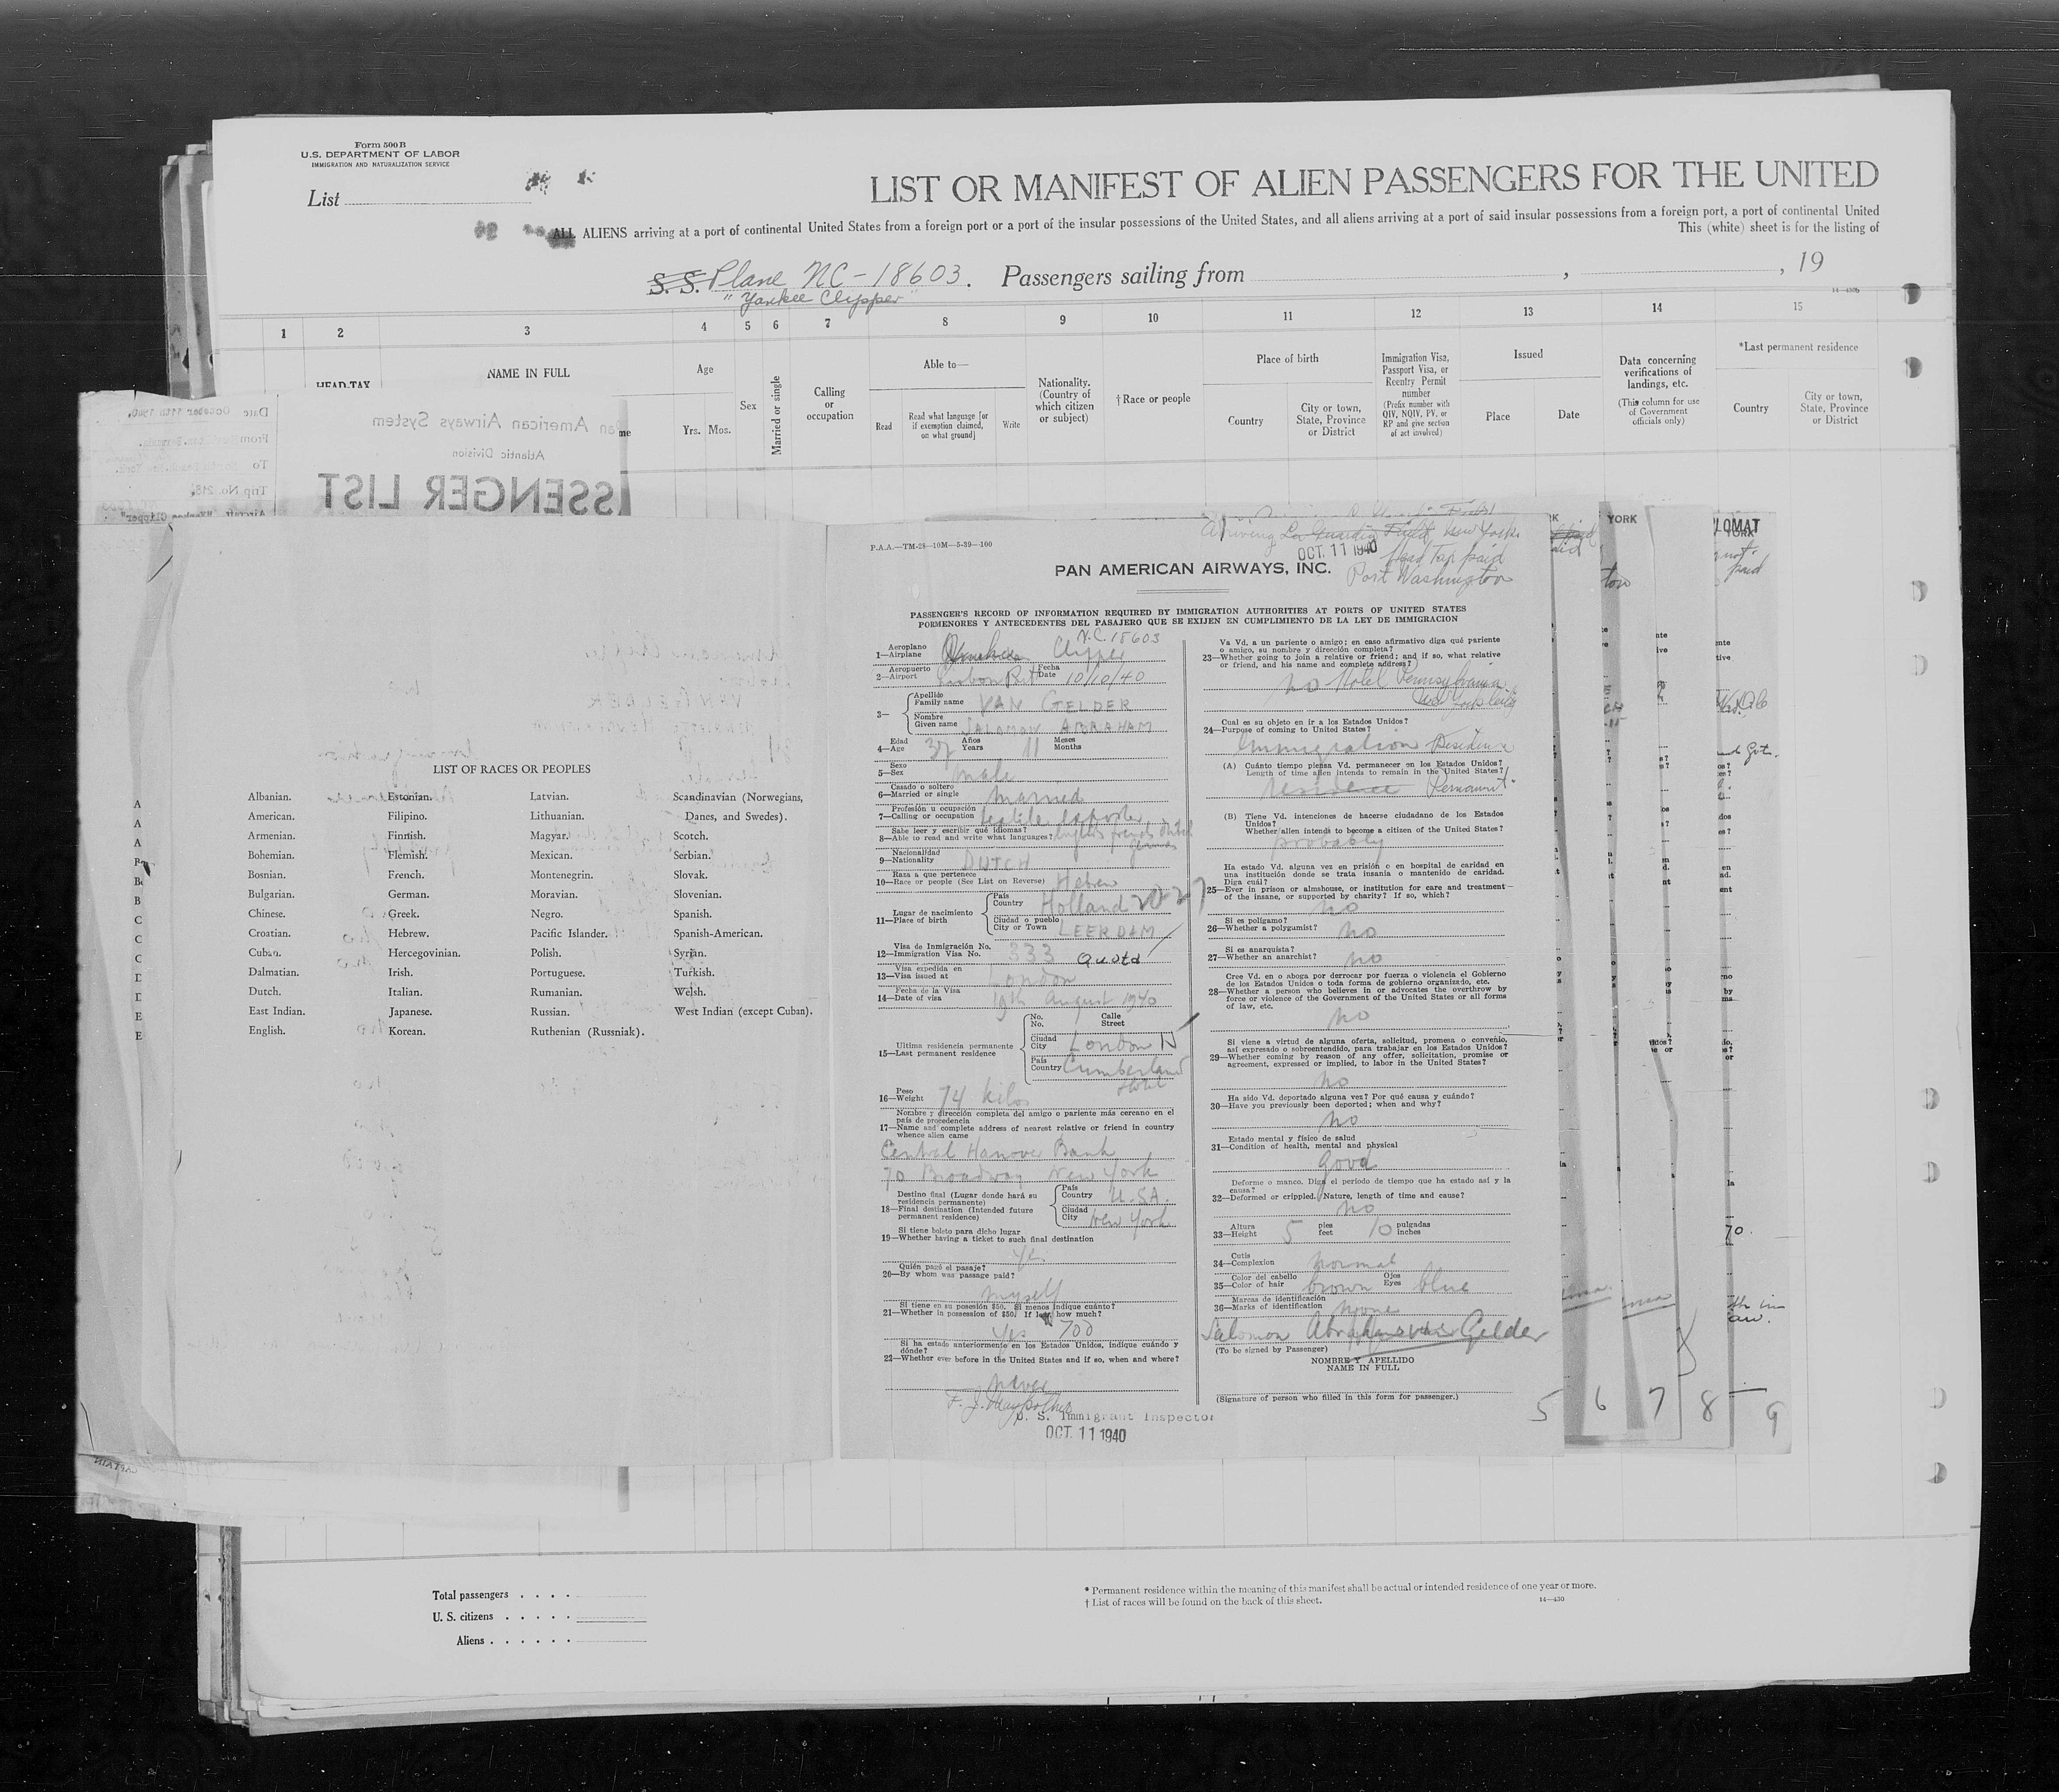 Form 500B
U.S. DEPARTMENT OF LABOR
IMMIGRATION AND NATURALIZATION SERVICE
List
LIST OR MANIFEST OF ALIEN PASSENGERS FOR THE UNITED
ALL ALIENS arriving at a port of continental United States from a foreign port or a port of the insular possessions of the United States, and all aliens arriving at a port of said insular possessions from a foreign port, a port of continental United
This (white) sheet is for the listing of
S. S. Plane NC-18603. Passengers sailing from , , 19
"Yankee Clipper"
1 2 3 4 5 6 7 8 9 10 11 12 13 14 15
HEAD-TAX
NAME IN FULL
Age
Yrs. Mos.
Sex
Married or single
Calling
or
occupation
Able to—
Read
Read what language [or
if exemption claimed,
on what ground]
Write
Nationality.
(Country of
which citizen
or subject)
† Race or people
Place of birth
Country
City or town,
State, Province
or District
Immigration Visa,
Passport Visa, or
Reentry Permit
number
(Prefix number with
QIV, NQIV, PV, or
RP and give section
of act involved)
Issued
Place
Date
Data concerning
verifications of
landings, etc.
(This column for use
of Government
officials only)
*Last permanent residence
Country
City or town,
State, Province
or District
Date October 11th 1940.
From
To
Trip No. 218
Aircraft "Yankee Clipper"
Pan American Airways System
Atlantic Division
SSENGER LIST
LIST OF RACES OR PEOPLES
Albanian. Estonian. Latvian. Scandinavian (Norwegians,
American. Filipino. Lithuanian. Danes, and Swedes).
Armenian. Finnish. Magyar. Scotch.
Bohemian. Flemish. Mexican. Serbian.
Bosnian. French. Montenegrin. Slovak.
Bulgarian. German. Moravian. Slovenian.
Chinese. Greek. Negro. Spanish.
Croatian. Hebrew. Pacific Islander. Spanish-American.
Cuban. Hercegovinian. Polish. Syrian.
Dalmatian. Irish. Portuguese. Turkish.
Dutch. Italian. Rumanian. Welsh.
East Indian. Japanese. Russian. West Indian (except Cuban).
English. Korean. Ruthenian (Russniak).
P.A.A.—TM-28—10M—5-39—100
Arriving La Guardia Field, New York
OCT. 11 1940
Head Tax paid
Port Washington
PAN AMERICAN AIRWAYS, INC.
PASSENGER'S RECORD OF INFORMATION REQUIRED BY IMMIGRATION AUTHORITIES AT PORTS OF UNITED STATES
PORMENORES Y ANTECEDENTES DEL PASAJERO QUE SE EXIJEN EN CUMPLIMIENTO DE LA LEY DE IMMIGRACION
N.C. 18603
Aeroplano
1—Airplane Clipper
Aeropuerto Fecha
2—Airport Lisbon Date 10/10/40
3—
Apellido
Family name VAN GELDER
Nombre
Given name SALOMON ABRAHAM
Edad Años Meses
4—Age 37 Years 11 Months
Sexo
5—Sex male
Casado o soltero
6—Married or single married
Profesión u ocupación
7—Calling or occupation textile exporter
Sabe leer y escribir qué idiomas?
8—Able to read and write what languages? english french dutch
german
Nacionalidad
9—Nationality DUTCH
Raza a que pertenece
10—Race or people (See List on Reverse) Hebrew
Lugar de nacimiento
11—Place of birth
País
Country Holland
Ciudad o pueblo
City or Town LEERDAM
Visa de Inmigración No.
12—Immigration Visa No. 333 Quota
Visa expedida en
13—Visa issued at London
Fecha de la Visa
14—Date of visa 19th August 1940
Ultima residencia permanente
15—Last permanent residence
No. Calle
No. Street
Ciudad
City London
País
Country Cumberland
Hotel
Peso
16—Weight 74 kilos
Nombre y dirección completa del amigo o pariente más cercano en el
país de procedencia
17—Name and complete address of nearest relative or friend in country
whence alien came
Central Hanover Bank
70 Broadway New York
Destino final (Lugar donde hará su
residencia permanente)
18—Final destination (Intended future
permanent residence)
País
Country U.S.A.
Ciudad
City New York
Si tiene boleto para dicho lugar
19—Whether having a ticket to such final destination
yes
Quién pagó el pasaje?
20—By whom was passage paid?
myself
Si tiene en su posesión $50. Si menos indique cuánto?
21—Whether in possession of $50? If less how much?
yes 700
Si ha estado anteriormente en los Estados Unidos, indique cuándo y
dónde?
22—Whether ever before in the United States and if so, when and where?
never
U. S. Immigrant Inspector
OCT. 11 1940
Va Vd. a un pariente o amigo; en caso afirmativo diga qué pariente
o amigo, su nombre y dirección completa?
23—Whether going to join a relative or friend; and if so, what relative
or friend, and his name and complete address?
no Hotel Pennsylvania
New York City
Cual es su objeto en ir a los Estados Unidos?
24—Purpose of coming to United States?
Immigration Residence
(A) Cuánto tiempo piensa Vd. permanecer en los Estados Unidos?
Length of time alien intends to remain in the United States?
residence Permanent
(B) Tiene Vd. intenciones de hacerse ciudadano de los Estados
Unidos?
Whether alien intends to become a citizen of the United States?
probably
Ha estado Vd. alguna vez en prisión o en hospital de caridad en
una institución donde se trata insania o mantenido de caridad.
Diga cuál?
25—Ever in prison or almshouse, or institution for care and treatment
of the insane, or supported by charity? If so, which?
no
Si es polígamo?
26—Whether a polygamist? no
Si es anarquista?
27—Whether an anarchist? no
Cree Vd. en o aboga por derrocar por fuerza o violencia el Gobierno
de los Estados Unidos o toda forma de gobierno organizado, etc.
28—Whether a person who believes in or advocates the overthrow by
force or violence of the Government of the United States or all forms
of law, etc.
no
Si viene a virtud de alguna oferta, solicitud, promesa o convenio,
así expresado o sobreentendido, para trabajar en los Estados Unidos?
29—Whether coming by reason of any offer, solicitation, promise or
agreement, expressed or implied, to labor in the United States?
no
Ha sido Vd. deportado alguna vez? Por qué causa y cuándo?
30—Have you previously been deported; when and why?
no
Estado mental y físico de salud
31—Condition of health, mental and physical
good
Deforme o manco. Diga el período de tiempo que ha estado así y la
causa?
32—Deformed or crippled. Nature, length of time and cause?
no
Altura pies pulgadas
33—Height 5 feet 10 inches
Cutis
34—Complexion normal
Color del cabello Ojos
35—Color of hair brown Eyes blue
Marcas de identificación
36—Marks of identification none
Salomon Abraham van Gelder
(To be signed by Passenger)
NOMBRE Y APELLIDO
NAME IN FULL
(Signature of person who filled in this form for passenger.)
YORK
YORK
paid
5 6 7 8 9
Total passengers . . . .
U. S. citizens . . . . .
Aliens . . . . . .
* Permanent residence within the meaning of this manifest shall be actual or intended residence of one year or more.
† List of races will be found on the back of this sheet.
14—430